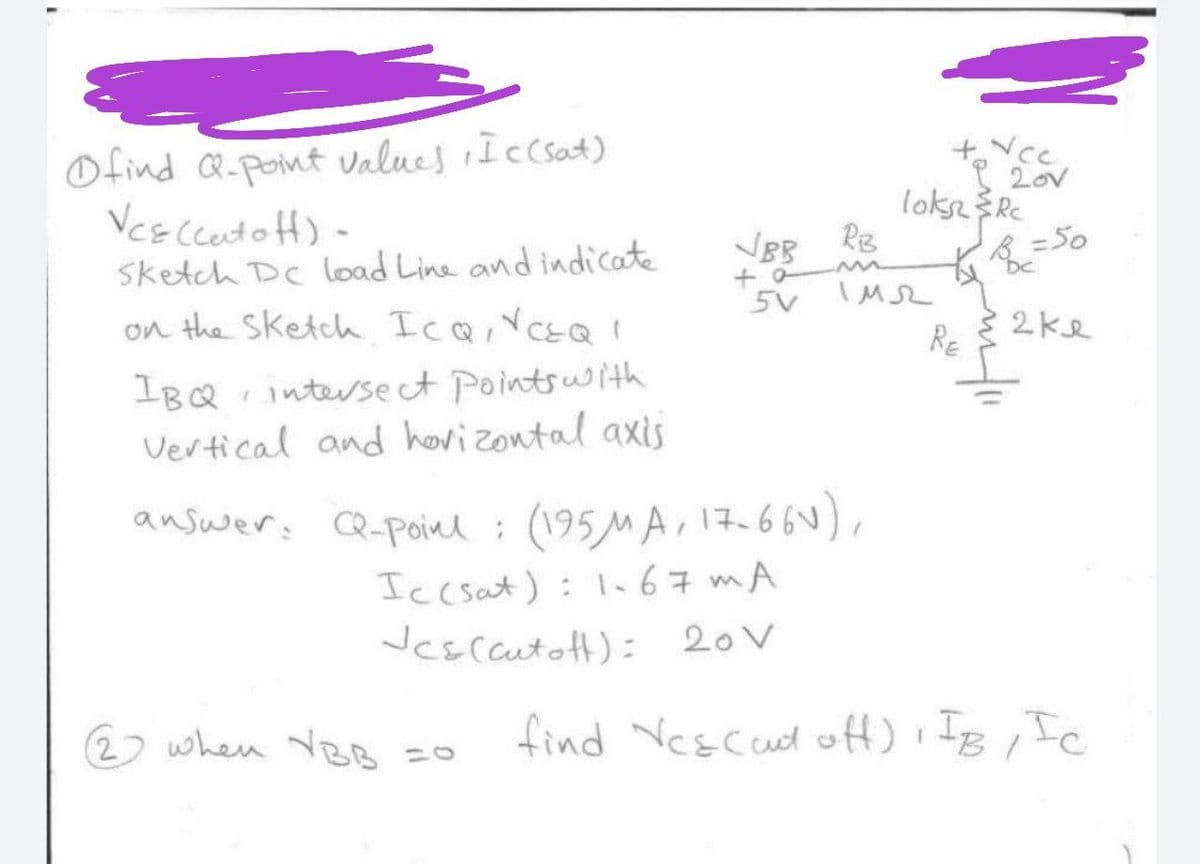 ① find Q-point values, Ic(sat)
VCE(cutoff).
Sketch DC load Line and indicate
on the Sketch ICQ, VCEQ,
IBQ, intersect Points with
Vertical and horizontal axis
+VCC
20V
10kΩ RC
VBB RB
βDC = 50
+
5V 1MΩ
RE 2kΩ
answer: Q-point : (195μA, 17.66V),
Ic(sat) : 1.67 mA
VCE(cutoff) : 20V
② when VBB = 0 find VCE(cut off), IB, IC